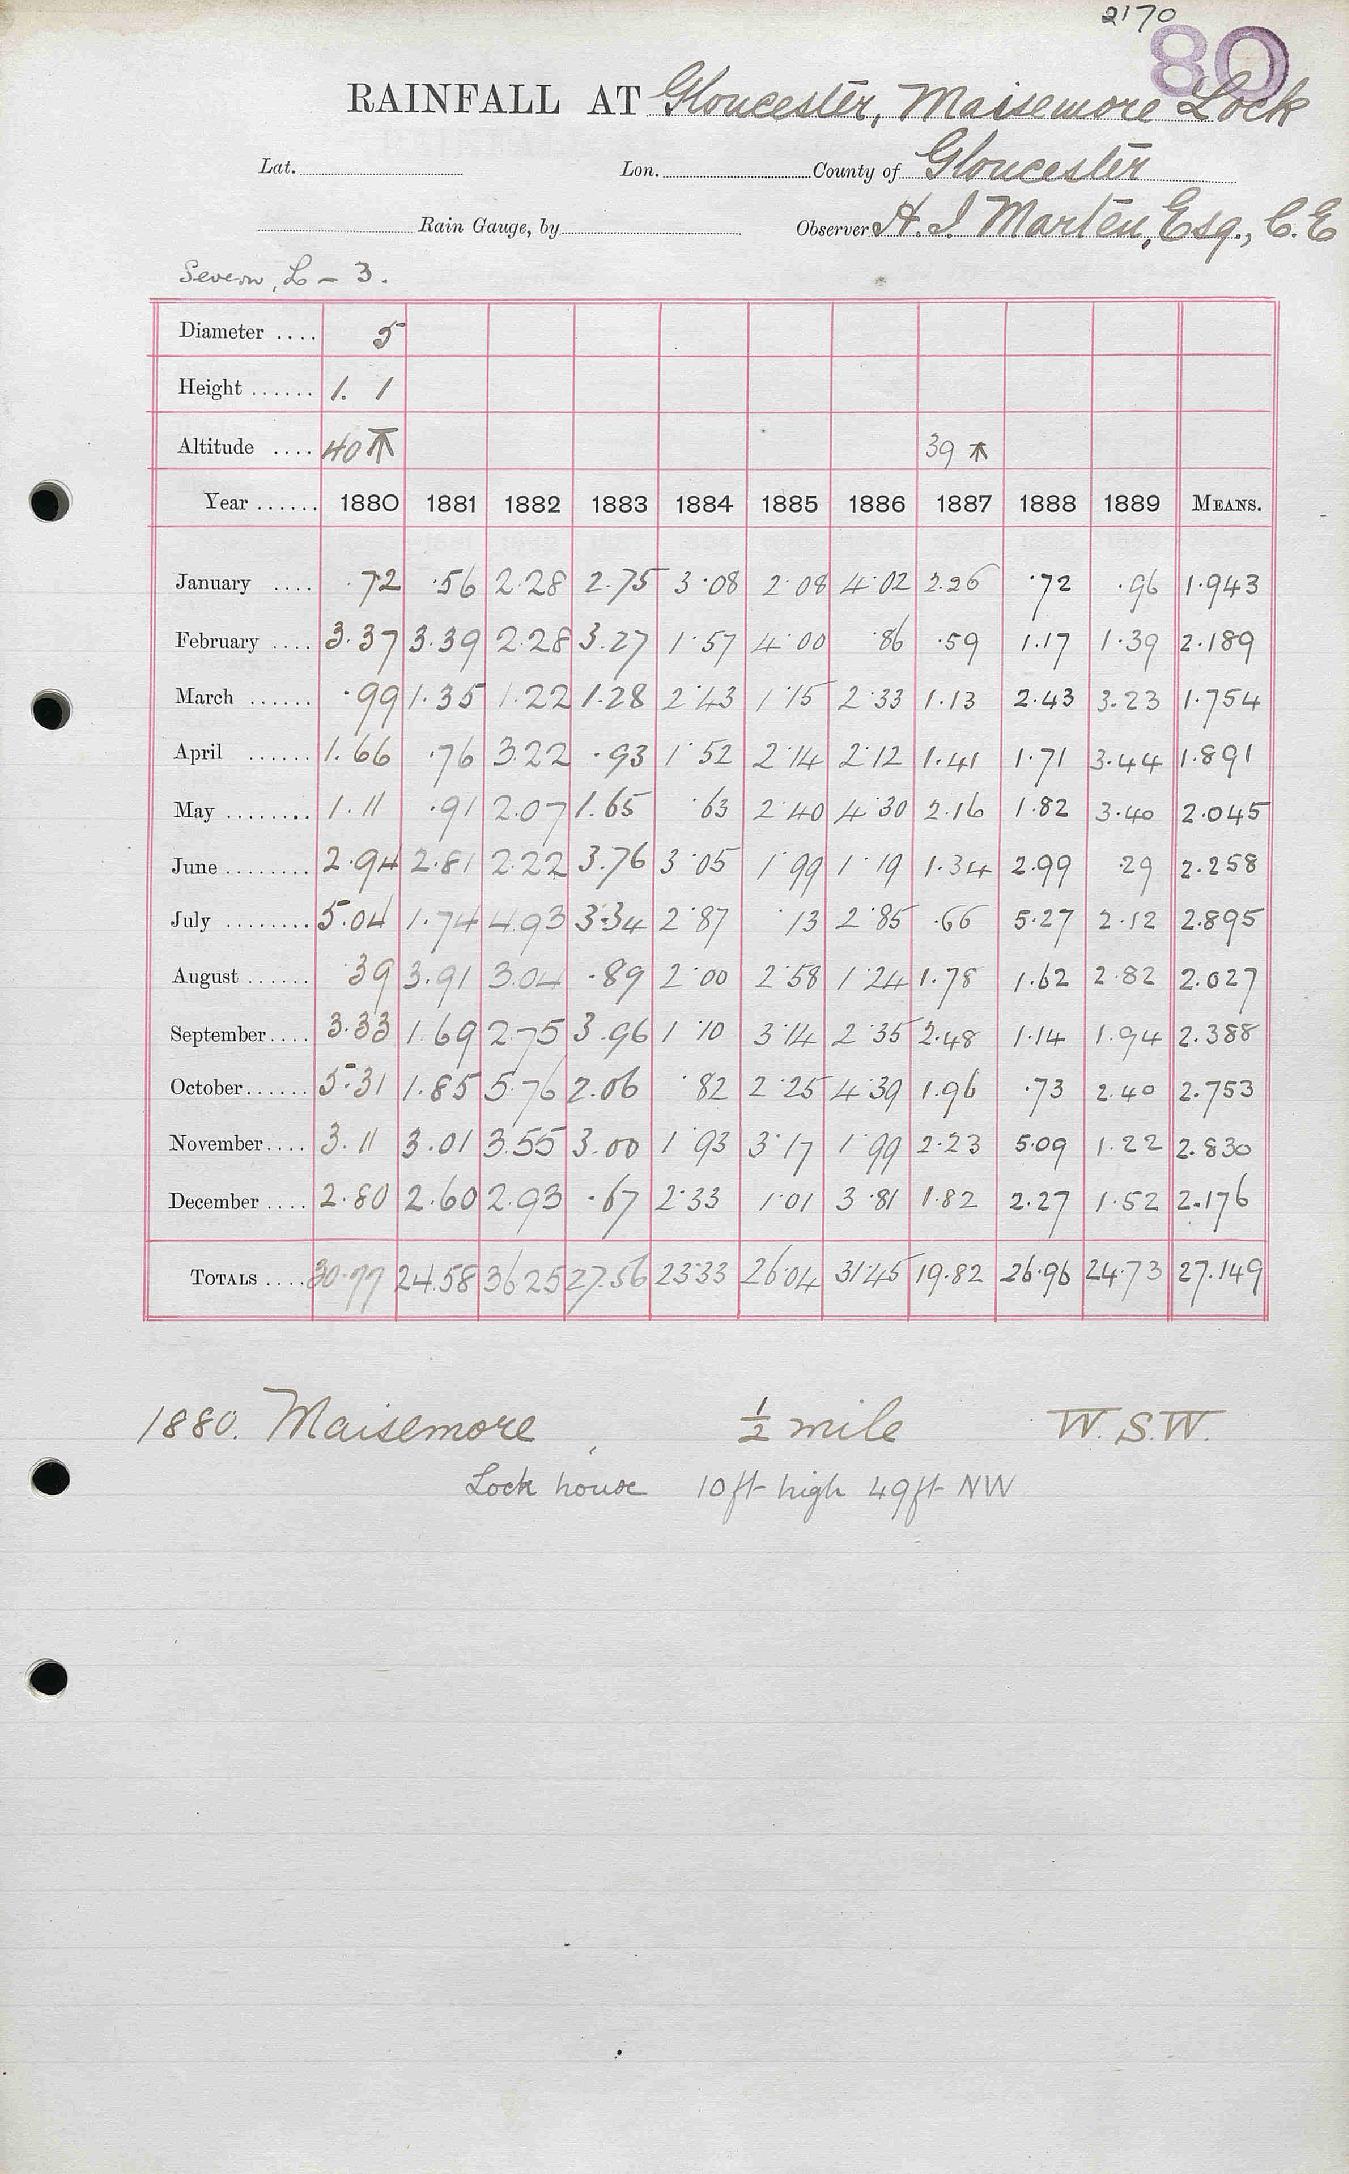 2170
80
RAINFALL AT Gloucester, Maisemore Lock
Lat. Lon. County of Gloucester
Rain Gauge, by Observer H. J. Marten, Esq., C.E
Severn, L - 3.
Diameter .... 5
Height ...... 1. 1
Altitude .... 40 39
Year ...... 1880 1881 1882 1883 1884 1885 1886 1887 1888 1889 MEANS.
January .... .72 .56 2.28 2.75 3.08 2.08 4.02 2.26 .72 .96 1.943
February .... 3.37 3.39 2.28 3.27 1.57 4.00 .86 .59 1.17 1.39 2.189
March ...... .99 1.35 1.22 1.28 2.43 1.15 2.33 1.13 2.43 3.23 1.754
April ...... 1.66 .76 3.22 .93 1.52 2.14 2.12 1.41 1.71 3.44 1.891
May ........ 1.11 .91 2.07 1.65 .63 2.40 4.30 2.16 1.82 3.40 2.045
June ........ 2.94 2.81 2.22 3.76 3.05 1.99 1.19 1.34 2.99 .29 2.258
July ........ 5.04 1.74 4.93 3.34 2.87 .13 2.85 .66 5.27 2.12 2.895
August ...... .39 3.91 3.04 .89 2.00 2.58 1.24 1.78 1.62 2.82 2.027
September.... 3.33 1.69 2.75 3.96 1.10 3.14 2.35 2.48 1.14 1.94 2.388
October...... 5.31 1.85 5.76 2.06 .82 2.25 4.39 1.96 .73 2.40 2.753
November.... 3.11 3.01 3.55 3.00 1.93 3.17 1.99 2.23 5.09 1.22 2.830
December .... 2.80 2.60 2.93 .67 2.33 1.01 3.81 1.82 2.27 1.52 2.176
TOTALS .... 30.77 24.58 36.25 27.56 23.33 26.04 31.45 19.82 26.96 24.73 27.149
1880. Maisemore ½ mile W.S.W.
Lock house 10ft high 49ft NW